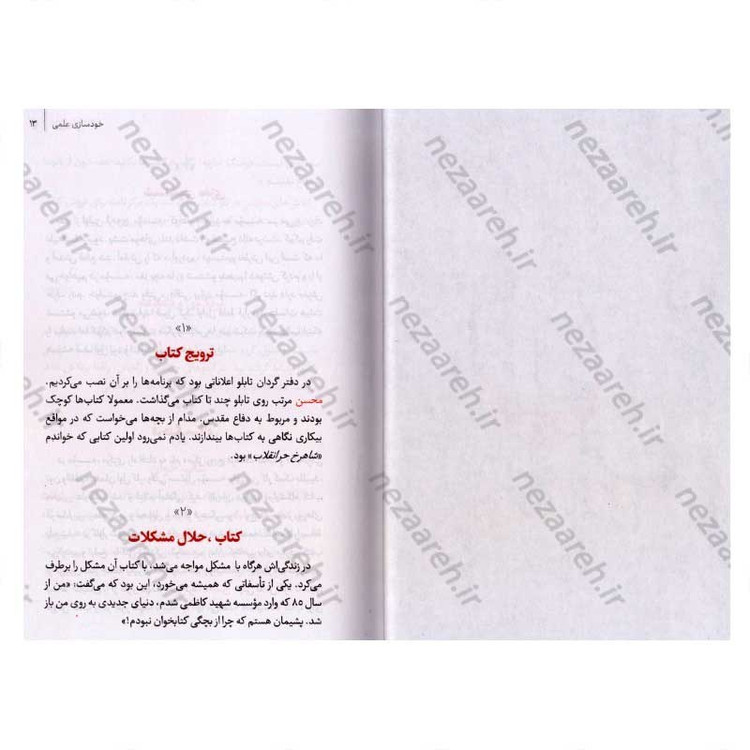 خودسازی علمی | ۱۳
«۱»
ترویج کتاب
در دفتر گردان تابلو اعلاناتی بود که برنامه‌ها را بر آن نصب می‌کردیم.
محسن مرتب روی تابلو چند تا کتاب می‌گذاشت. معمولا کتاب‌ها کوچک
بودند و مربوط به دفاع مقدس. مدام از بچه‌ها می‌خواست که در مواقع
بیکاری نگاهی به کتاب‌ها بیندازند. یادم نمی‌رود اولین کتابی که خواندم
«شاهرخ حر انقلاب» بود.
«۲»
کتاب ،حلال مشکلات
در زندگی‌اش هرگاه با مشکل مواجه می‌شد، با کتاب آن مشکل را برطرف
می‌کرد. یکی از تأسفاتی که همیشه می‌خورد، این بود که می‌گفت: «من از
سال ۸۵ که وارد مؤسسه شهید کاظمی شدم، دنیای جدیدی به روی من باز
شد. پشیمان هستم که چرا از بچگی کتابخوان نبودم!»
nezaareh.ir
nezaareh.ir
nezaareh.ir
nezaareh.ir
nezaareh.ir
nezaareh.ir
nezaareh.ir
nezaareh.ir
nezaareh.ir